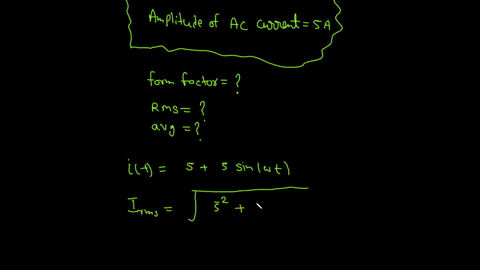 Amplitude of AC current = 5A
form factor = ?
Rms = ?
avg = ?
i(t) = 5 + 5 sin(ωt)
Irms = √ 5² +